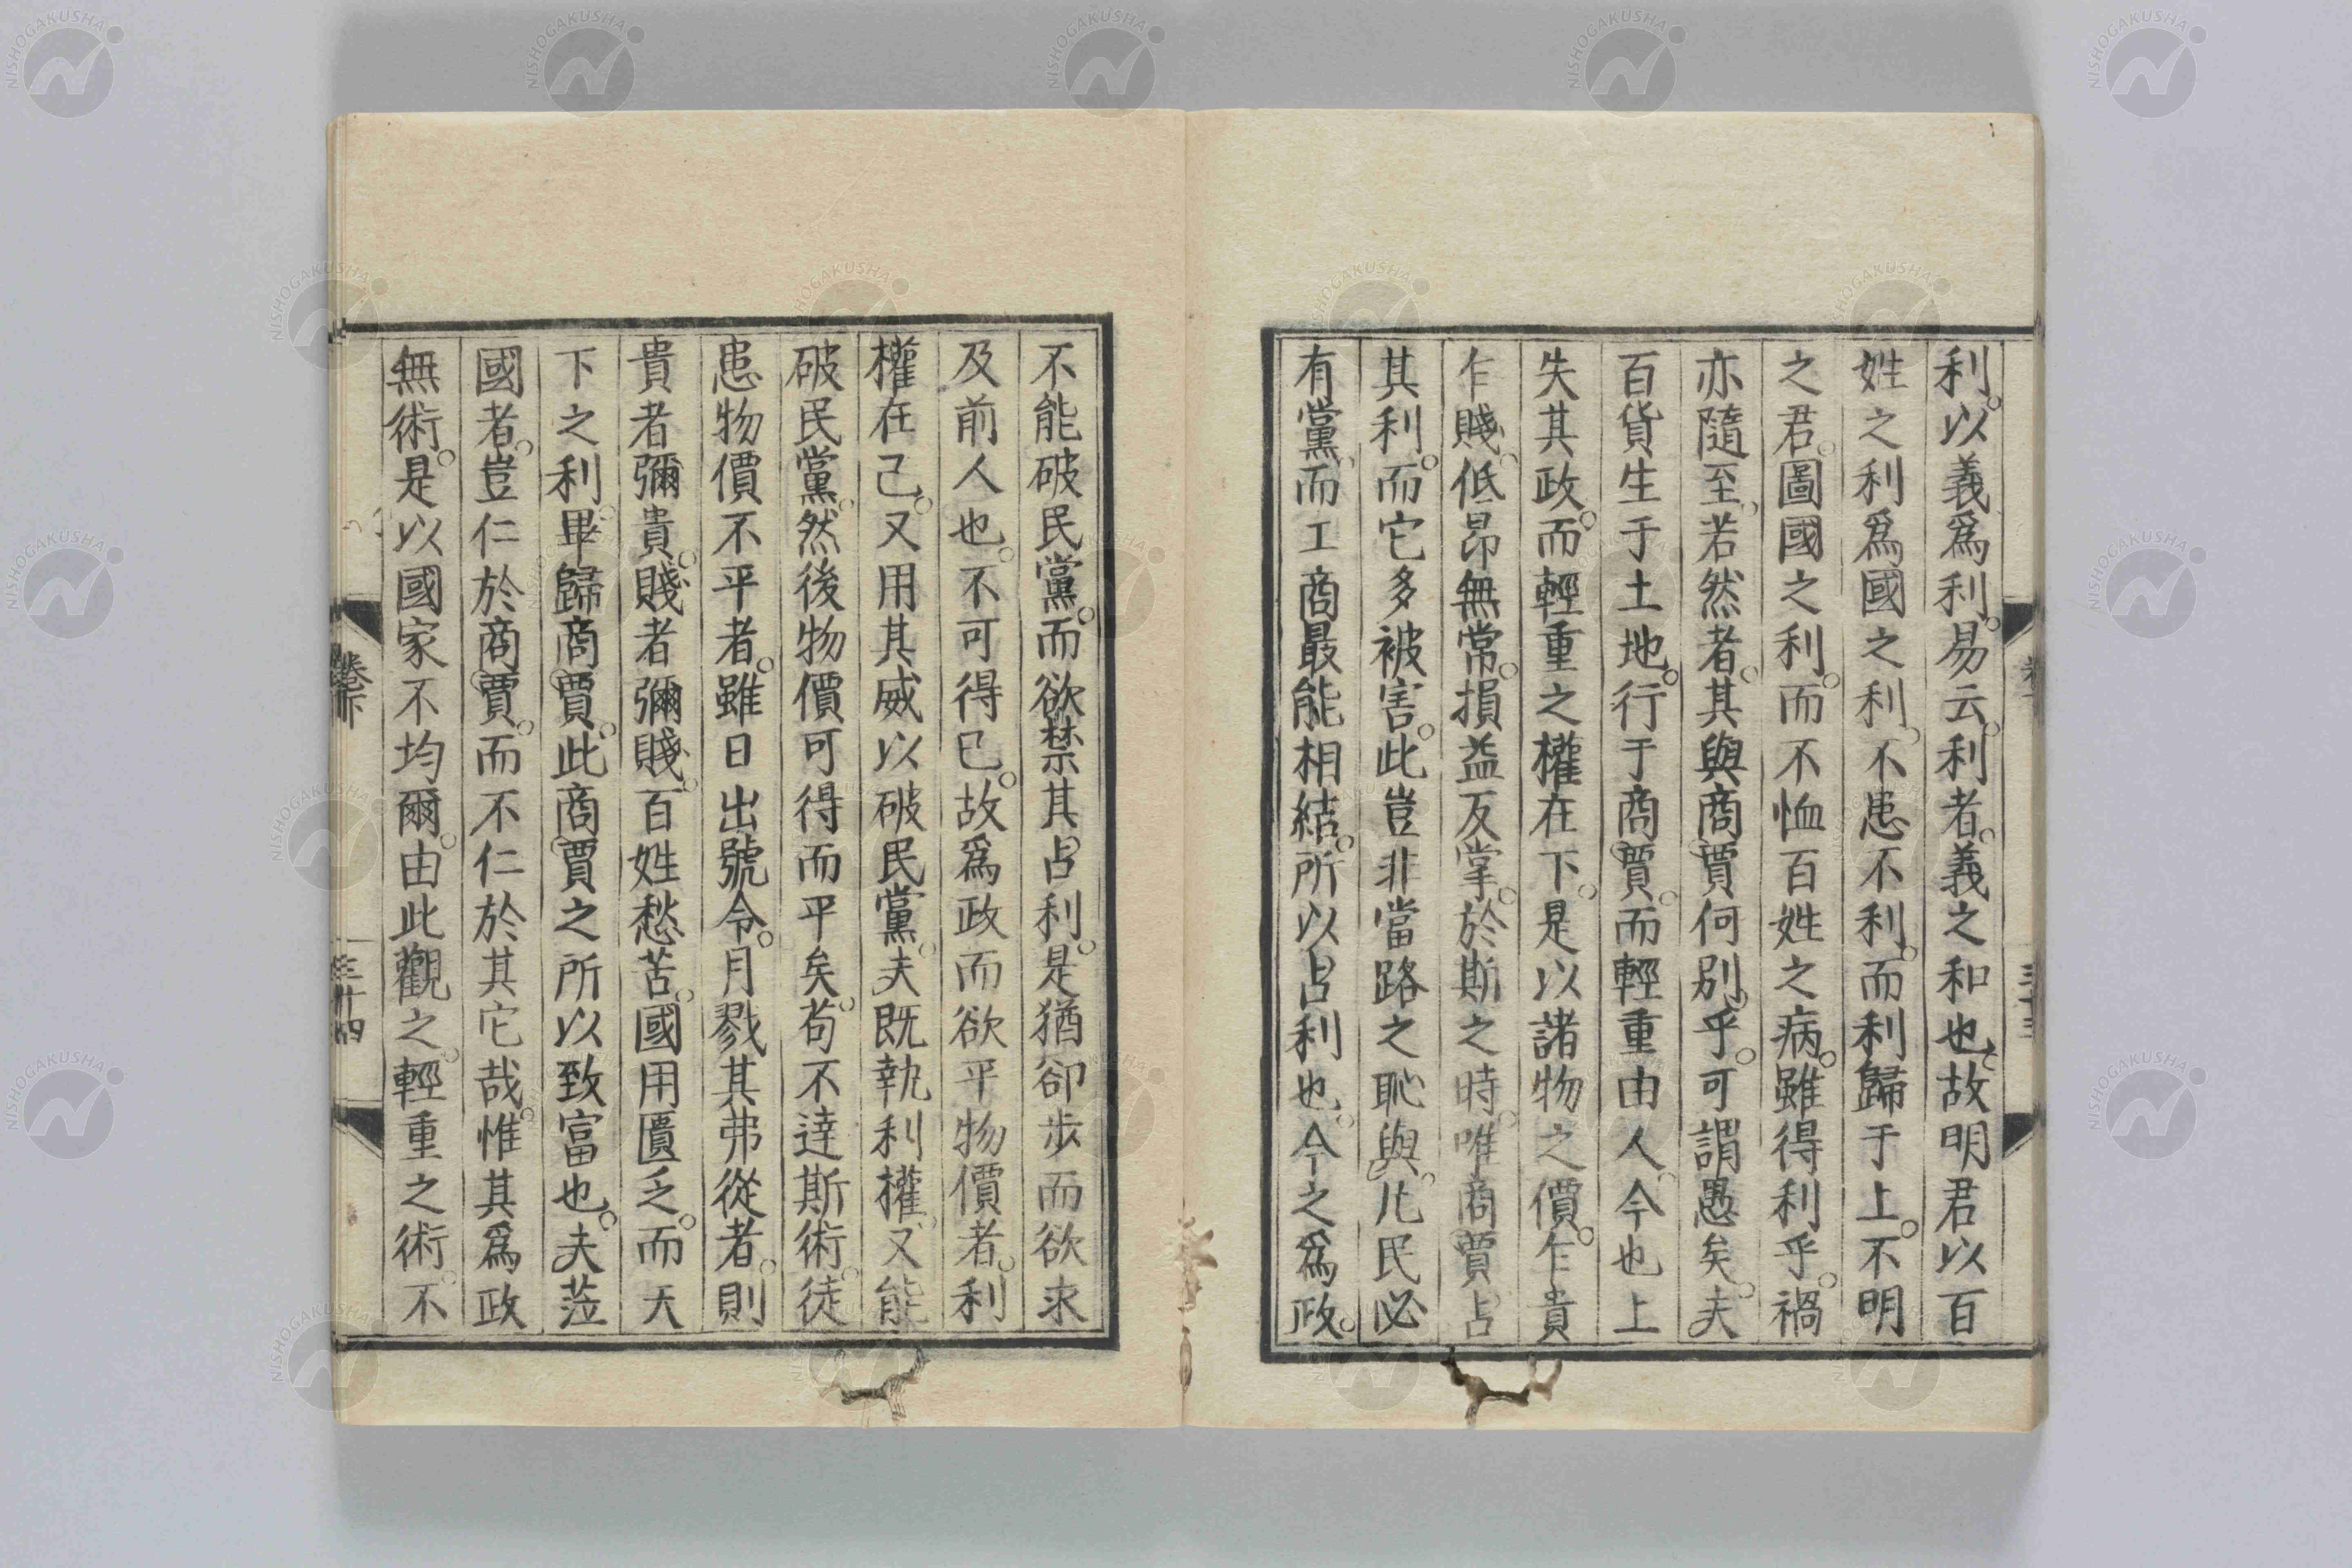 利。以義爲利。易云。利者。義之和也。故明君以百
姓之利爲國之利。不患不利。而利歸于上。不明
之君。圖國之利。而不恤百姓之病。雖得利乎。禍
亦隨至。若然者。其與商賈何別乎。可謂愚矣。夫
百貨生于土地。行于商賈。而輕重由人。今也上
失其政。而輕重之權在下。是以諸物之價。乍貴
乍賤。低昂無常。損益反掌。於斯之時。唯商賈占
其利。而它多被害。此豈非當路之恥與。凡民必
有黨。而工商最能相結。所以占利也。今之爲政。
不能破民黨。而欲禁其占利。是猶卻步而欲求
及前人也。不可得已。故爲政而欲平物價者。利
權在己。又用其威以破民黨。夫既執利權。又能
破民黨。然後物價可得而平矣。苟不達斯術。徒
患物價不平者。雖日出號令。月戮其弗從者。則
貴者彌貴。賤者彌賤。百姓愁苦。國用匱乏。而天
下之利。畢歸商賈。此商賈之所以致富也。夫莅
國者。豈仁於商賈。而不仁於其它哉。惟其爲政
無術。是以國家不均爾。由此觀之。輕重之術。不
卷下
三十四
NISHOGAKUSHA